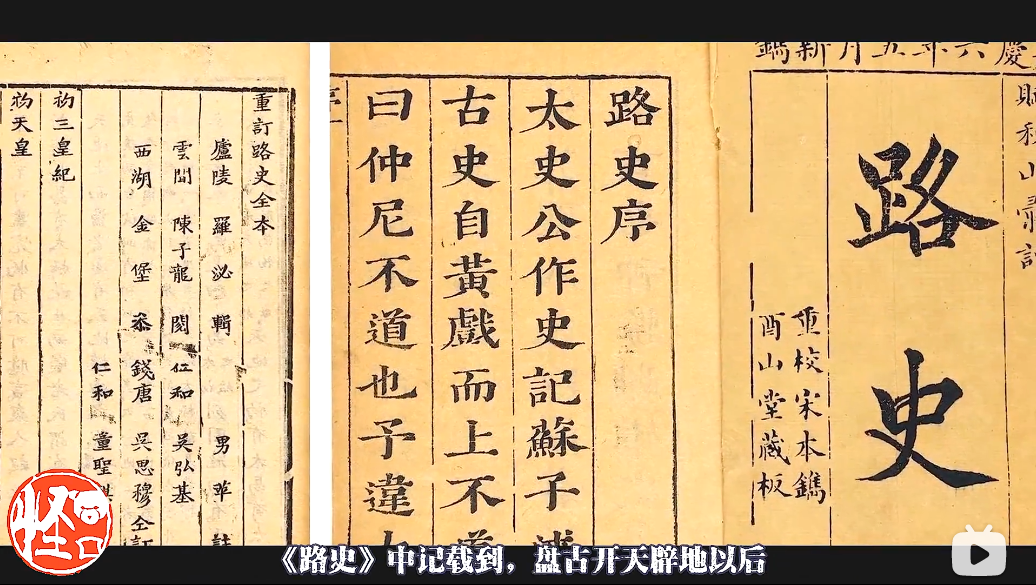 慶六年五月新鐫
路史
重校宋本鐫
酉山堂藏板
路史序
太史公作史記蘇子
古史自黃戲而上不
曰仲尼不道也予違
重訂路史全本
廬陵 羅泌 輯 男 苹 註
雲間 陳子龍 閱 仁和 吳弘基
西湖 金堡 叅 錢唐 吳思穆 仝訂
仁和 童聖
初三皇紀
初天皇
怪
《路史》中记载到，盘古开天辟地以后